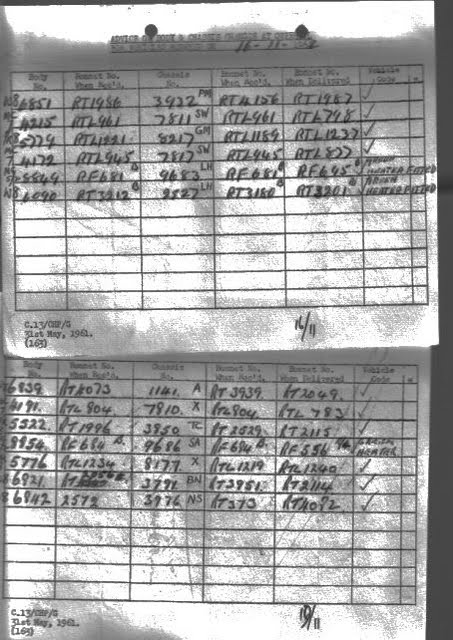 ADVICE OF BODY & CHASSIS CHANGES AT
16-11-
Body No. Bonnet No. When Rec'd. Chassis No. Bonnet No. When Rec'd. Bonnet No. When Delivered Vehicle Code
6851 RT1986 3932 PM RT4156 RT1987 ✓
4215 RTL961 7811 SW RTL961 RTL798 ✓
5779 RTL1221 8217 GM RTL1189 RTL1237 ✓
4172 RTL945 7817 SW RTL945 RTL827 ✓
8849 RF681 B 9683 LH RF681 B RF695 B HEATER FITTED
6090 RT3212 B 2527 LH RT3180 B RT3201 B HEATER FITTED
C.13/CHP/G
31st May, 1961.
(163)
16/11
Body No. Bonnet No. When Rec'd. Chassis No. Bonnet No. When Rec'd. Bonnet No. When Delivered Vehicle Code
6839 RT4073 1141. A RT3939. RT2049. ✓
4191. RTL804. 7810. X RTL804. RTL783 ✓
5522. RT1996 3850 TC RT2529 RT2115 ✓
8854 RF684 B. 9686 SA RF684 B. RF556 GREEN HEATER
5776 RTL1234 8177 X RTL1219 RTL1240 ✓
6821 3791 BN RT3951 RT2114 ✓
6842 2572 3976 NS RT373 RT4082 ✓
C.13/CHP/G
31st May, 1961.
(163)
19/11